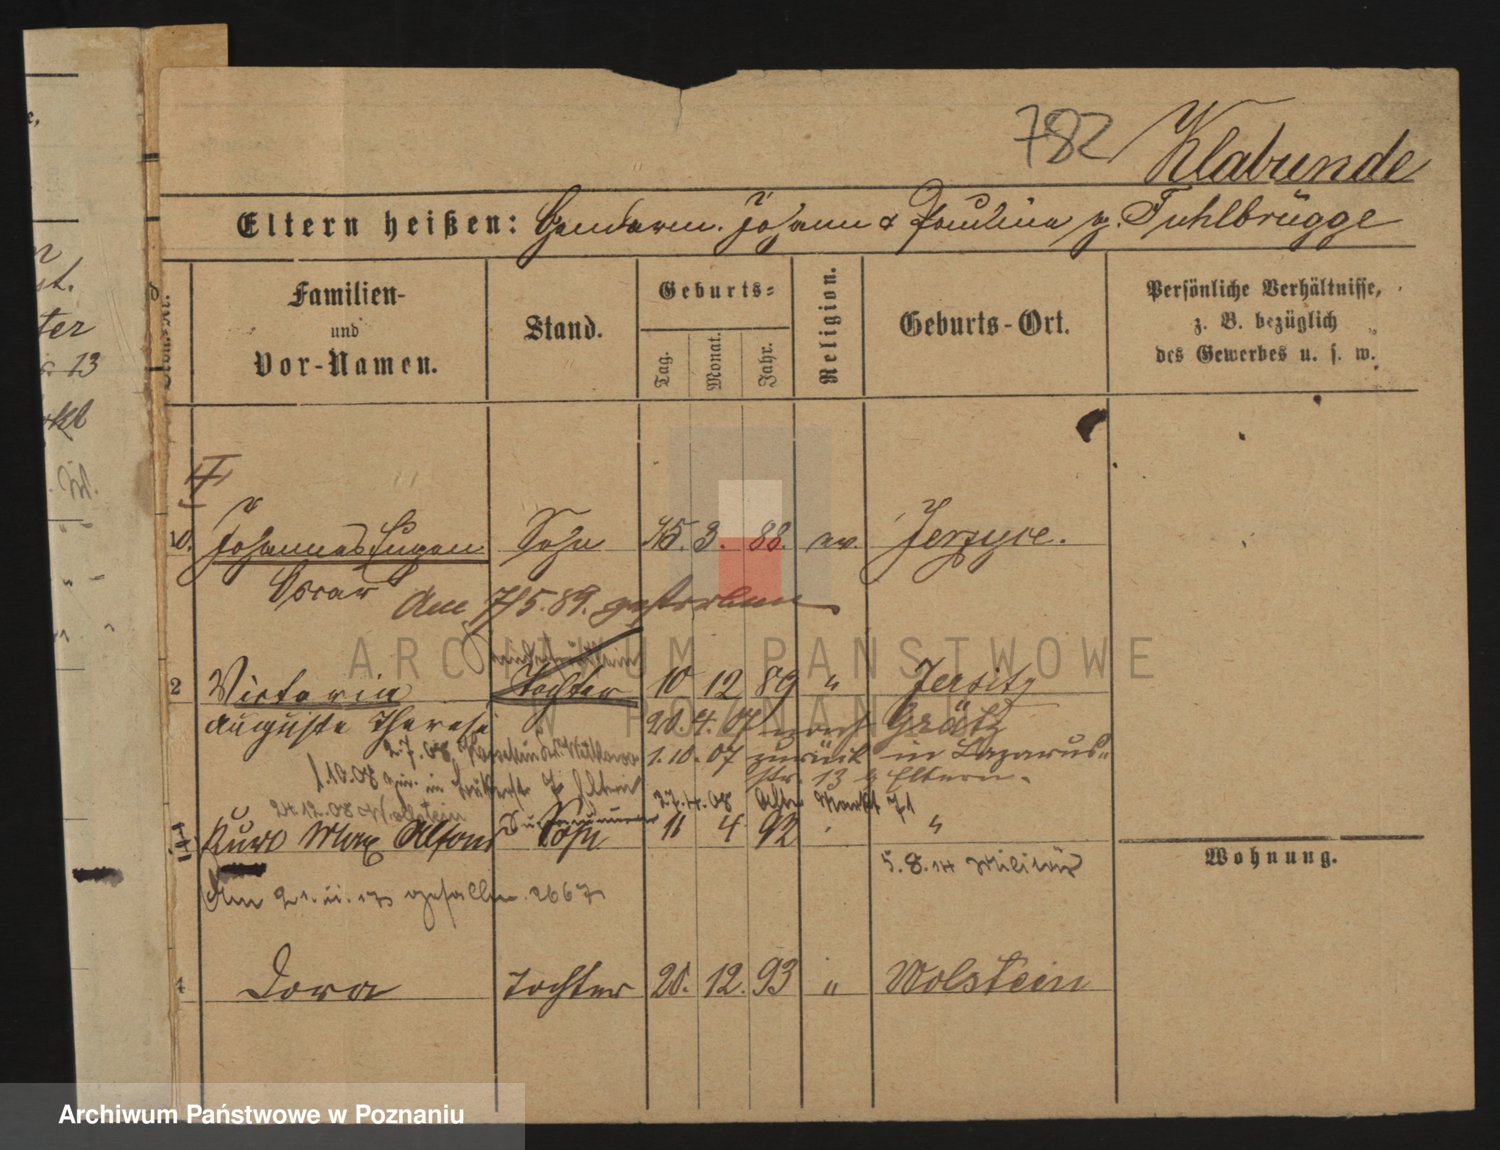 782 Klabunde
Eltern heißen: Gendarm. Johann & Paulina g. Fuhlbrügge
Familien- und Vor-Namen.
Stand.
Geburts-
Tag.
Monat.
Jahr.
Religion.
Geburts-Ort.
Persönliche Verhältnisse,
z. B. bezüglich
des Gewerbes u. s. w.
10. Johannes Eugen Sohn 15. 3. 88. ev. Jerzyce.
Oscar Am 7/5. 89. gestorben
ARCHIWUM PAŃSTWOWE
W POZNANIU
2 Victoria Tochter 10 12 89 " Jersitz
Auguste Therese 20. 4. 07 nach Grätz
2.7.08 1.10.07 zurück in Lazarus-
1.10.08 in str. 13 z Eltern.
24.12.08 Wolstein 27.4.08 Alter Markt 71
Kurt Max Alfons Sohn 11 4 92 "
5.8.14 Militär
Wohnung.
Am 21.11.17 gefallen.
4 Dora Tochter 20. 12. 93 " Wolstein
Archiwum Państwowe w Poznaniu